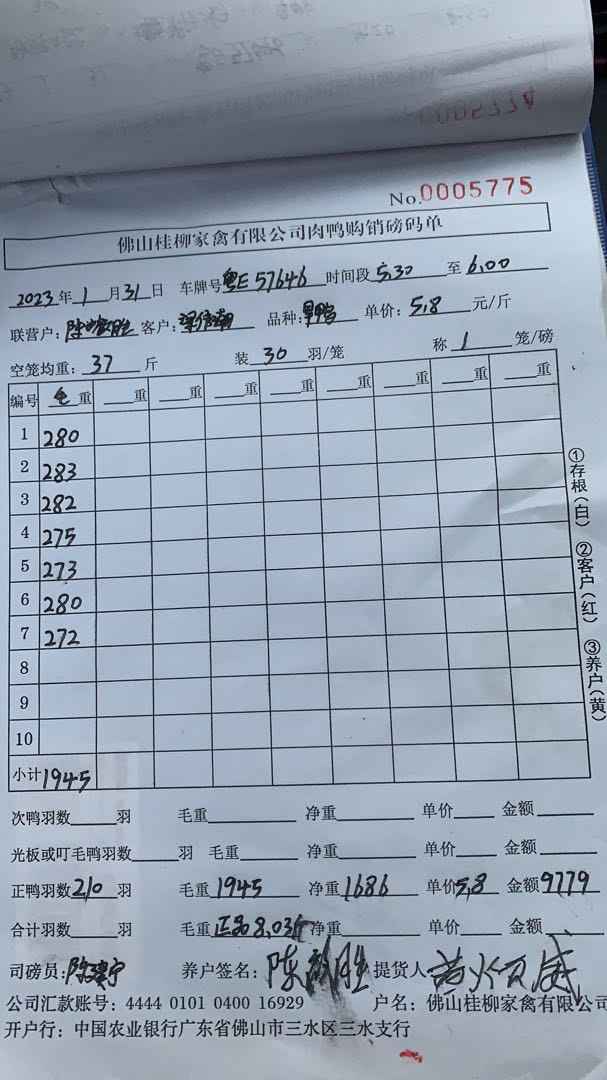 No.0005775
佛山桂柳家禽有限公司肉鸭购销磅码单
2023年1月31日 车牌号粤E57646 时间段5.30至6.00
联营户: 客户: 品种: 单价:5.8元/斤
空笼均重:37斤 装30羽/笼 称1笼/磅
编号 毛重 重 重 重 重 重 重 重 重
1 280
2 283
3 282
4 275
5 273
6 280
7 272
8
9
10
小计 1945
①存根(白) ②客户(红) ③养户(黄)
次鸭羽数 羽 毛重 净重 单价 金额
光板或叮毛鸭羽数 羽 毛重 净重 单价 金额
正鸭羽数210羽 毛重1945 净重1686 单价5.8 金额9779
合计羽数 羽 毛重 8.03斤 净重 单价 金额
司磅员: 养户签名: 提货人
公司汇款账号: 4444 0101 0400 16929 户名: 佛山桂柳家禽有限公司
开户行: 中国农业银行广东省佛山市三水区三水支行